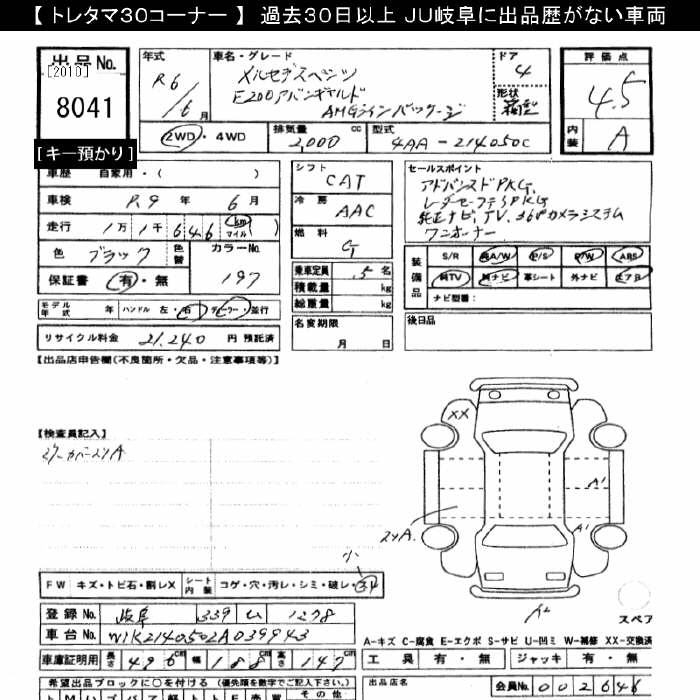 【 トレタマ30コーナー 】 過去30日以上 JU岐阜に出品歴がない車両
出品No.
[2010]
8041
[キー預かり]
年式
R6/6月
車名・グレード
メルセデスベンツ
E200アバンギャルド
AMGラインパッケージ
ドア
4
形状
箱型
評価点
4.5
内装
A
2WD・4WD
排気量
2,000 cc
型式
4AA-214050C
車歴 自家用・( )
車検 R9年 6月
走行 1万1千646 km マイル ( )
色 ブラック 色替
カラーNo.
197
保証書 有・無
モデル年式 年 ハンドル 左・右 ディーラー・並行
リサイクル料金 21,240 円 預託済
シフト
CAT
冷房
AAC
燃料
G
乗車定員 5名
積載量 kg
総重量 kg
名変期限
月 日
セールスポイント
アドバンスドPKG,
レザーセーフティPKG
純正ナビ,TV,360°カメラシステム
ワンオーナー
装備品
S/R 純A/W P/S P/W ABS
純TV 純ナビ 革シート 外ナビ エアB
ナビ型番:
後日品
【出品店申告欄(不良箇所・欠品・注意事項等)】
【検査員記入】
XX
A'
A'
A2
FW キズ・トビ石・割レX シート内装 コゲ・穴・汚レ・シミ・破レ・スレ
小
登録No. 岐阜 339 ム 1278
車台No. W1K2140502A039943
車庫証明用 長さ 496cm 幅 188cm 高さ 147cm
希望出品ブロックに○を付ける (優先順を数字でご記入下さい)
その他
スペア
A-キズ C-腐食 E-エクボ S-サビ U-凹ミ W-補修 XX-交換済
工具 有・無 ジャッキ 有・無
出品店名
会員No. 002646